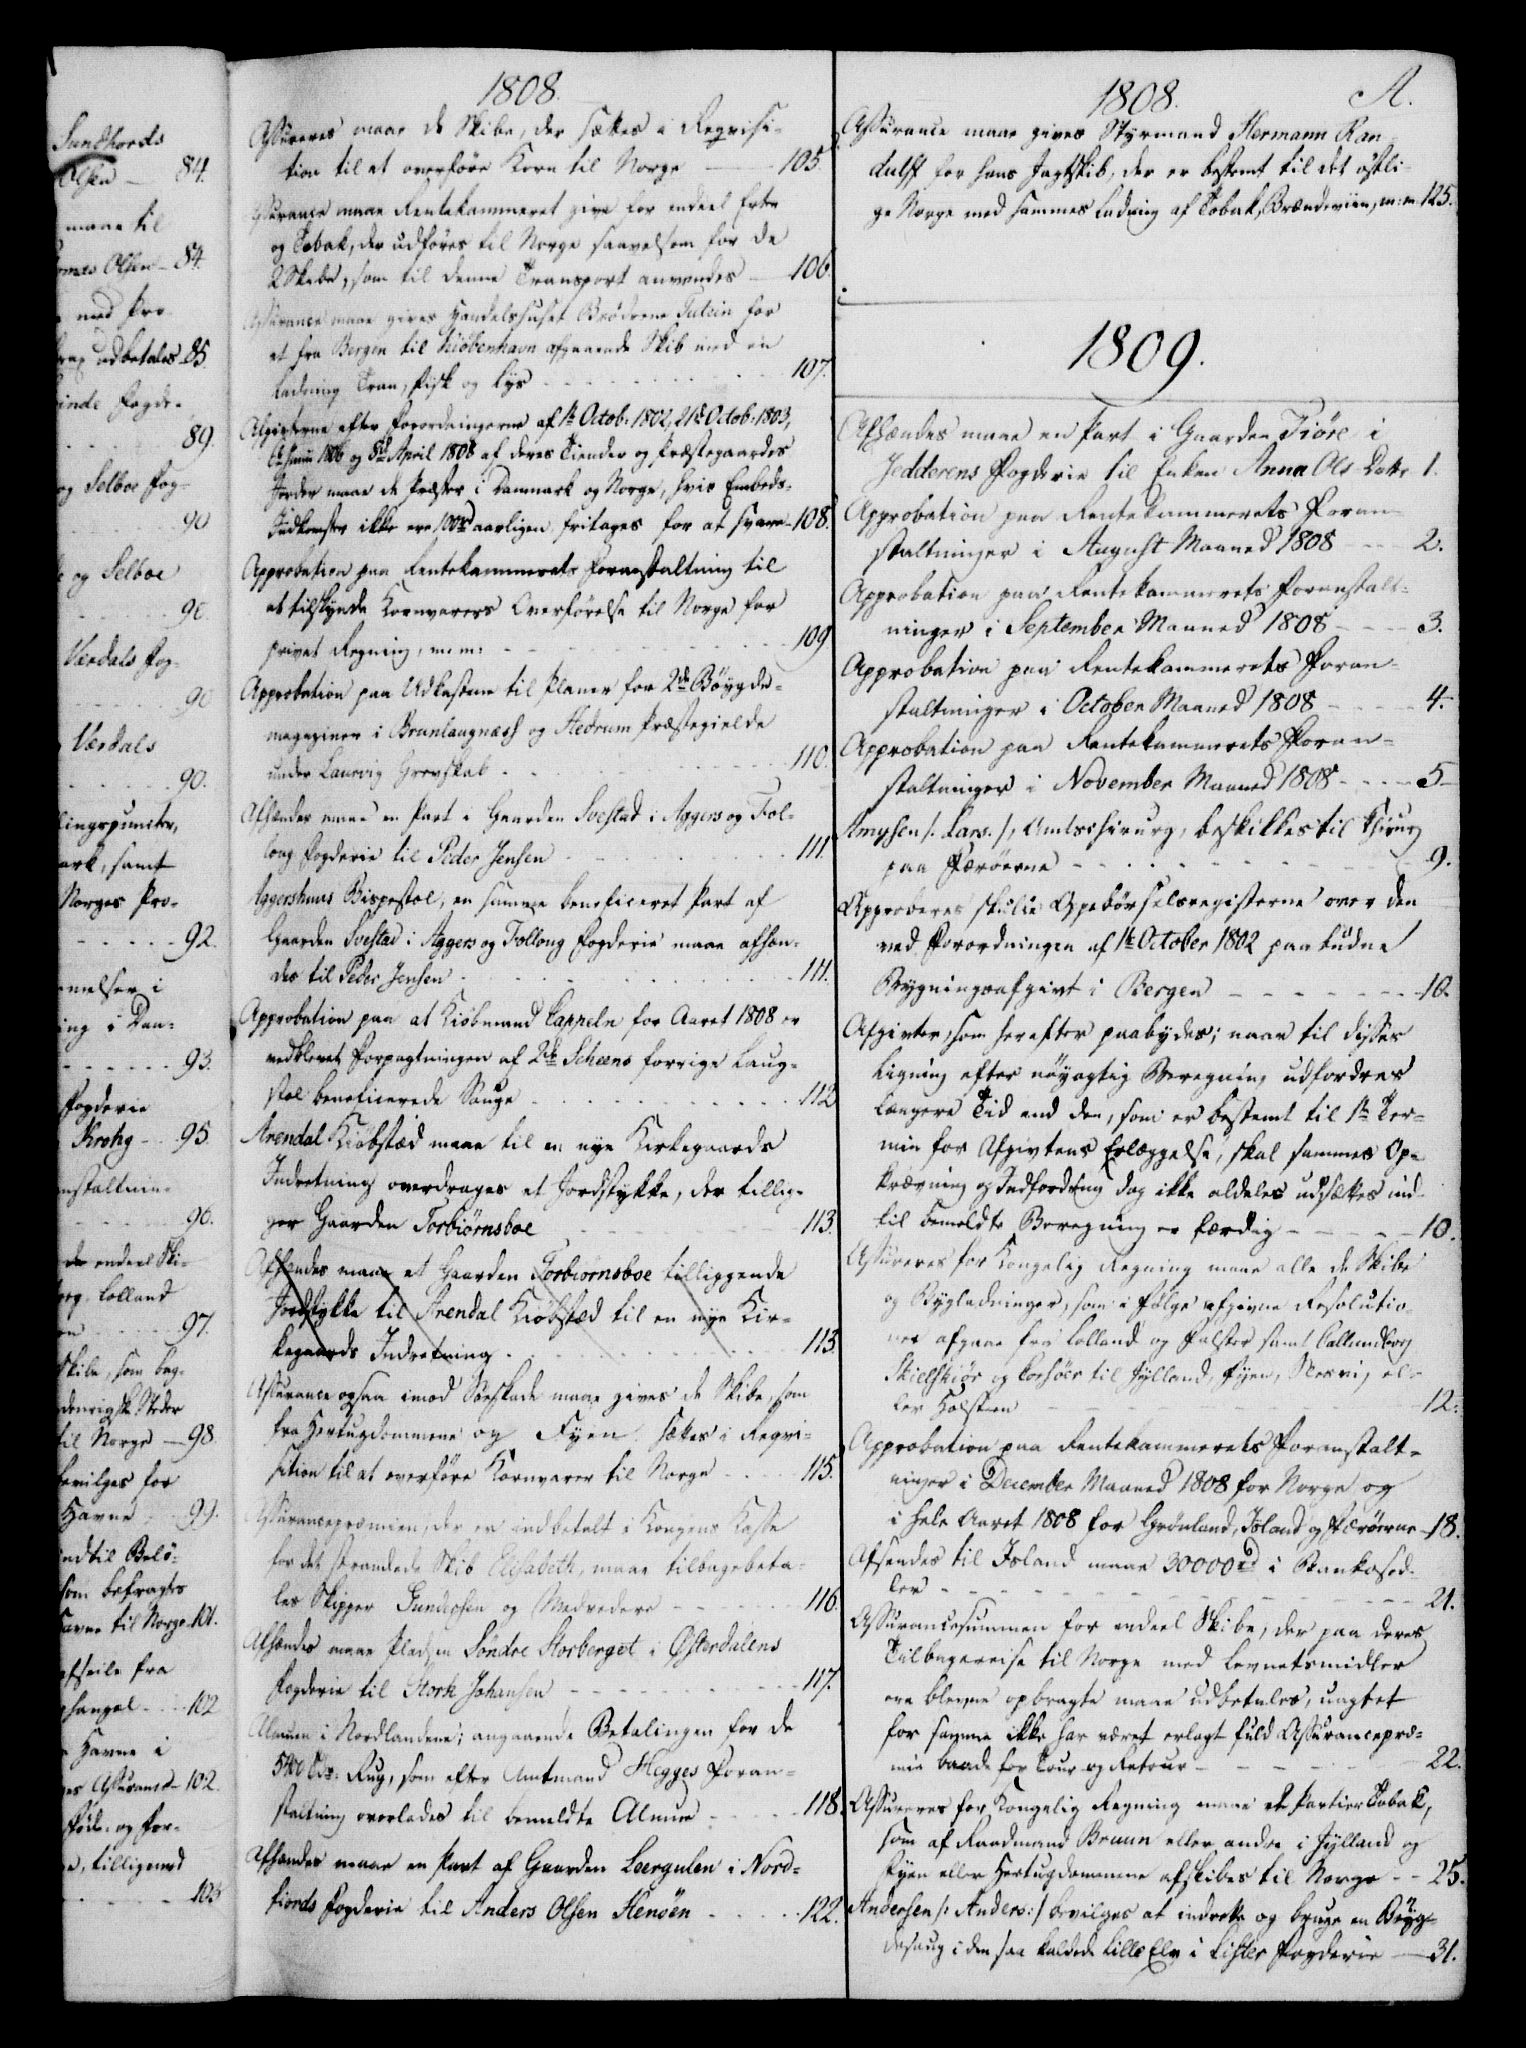 Sundhords
Olsen — 84.
maae til
Olsen — 84.
med Pro-
udbetales 85.
Fogde-
89.
og Selboe Fog-
90
og Selboe
90.
Værdals Fog-
90
Værdals
90.
lingspuncter,
samt
Norges Pro-
92.
i
i Dan-
93.
Fogderie
Krohg — 95.
96.
endeel Ski-
Lolland
97.
Skibe, som
Steder
til Norge — 98
bevilges for
Havne — 99.
indtil Belö-
som befragtes
til Norge 101.
fra
102
Havne i
Assurance 102.
og For-
tilligemed
103
1808.
Assureres maae de Skibe, der sættes i Reqvisi-
tion til at overföre Korn til Norge — 105.
Assurance maae Rentekammeret give for endeel
og Tobak, der udföres til Norge saavelsom for de
2 Skibe, som til denne Transport anvendes — 106.
Assurance maae gives Handelshuset Brödrene Tutein for
et fra Bergen til Kiöbenhavn afgaaende Skib med en
Ladning Tran, Fisk og Lys — 107.
Afgivterne efter Forordningerne af 1te Octob. 1802, 21de Octob. 1803,
1806 og 8de April 1808 af deres Tiender og Præstegaardes
Jorder maae de Præster i Danmark og Norge, hvis Embeds-
Indkomster ikke ere 100 rd aarligen fritages for at svare — 108.
Approbation paa Rentekammerets Foranstaltning til
at tilskynde Kornvarers Overförelse til Norge for
privat Regning, m: m: — 109
Approbation paa Udkastene til Planer for 2de Böygde-
magaziner i Brunlaugnæss og Hedrum Præstegielde
under Laurvig Grevskab — 110.
Afhændes maae en Part i Gaarden Svestad i Aggers og Fol-
loug Fogderie til Peder Jensen — 111.
Aggershuus Bispestol, en samme beneficeret Part af
Gaarden Svestad i Aggers og Folloug Fogderie maae afhæn-
des til Peder Jensen — 111.
Approbation paa at Kiöbmand Cappeln for Aaret 1808 er
vedblevet Forpagtningen af 2de Scheens forrige Laug-
stol beneficerede Sauge — 112
Arendal Kiöbstæd maae til en nye Kirkegaards
Indretning overdrages et Jordstykke, der tillig-
ger Gaarden Torbiörnsboe — 113.
Afhændes maae et Gaarden Torbiörnsboe tilliggende
Jordstykke til Arendal Kiöbstæd til en nye Kir-
kegaards Indretning — 113.
Assurance ogsaa imod Söeskade maae gives de Skibe, som
fra Hertugdommene og Fyen sættes i Reqvi-
sition til at overföre Kornvarer til Norge — 115.
Assurancepræmien, der er indbetalt i Kongens Kasse
for det strandede Skib Elisabeth, maae tilbagebeta-
les Skipper Gundersen og Medredere — 116.
Afhændes maae Pladsen Söndre Storberget i Østerdalens
Fogderie til Stork Johansen — 117.
Almuen i Nordlandene; angaaende Betalingen for de
500 Rug, som efter Amtmand Hegges Foran-
staltning overlades til bemeldte Almue — 118.
Afhændes maae en Part af Gaarden Leergulen i Nord-
fiords Fogderie til Anders Olsen Henöen — 122.
1808. A.
Assurance maae gives Styrmand Hermann Ran-
dulff for hans Jagtskib, der er bestemt til det östli-
ge Norge med sammes Ladning af Tobak, Brændeviin, m: m: 125.
1809.
Afhændes maae en Part i Gaarden Tiöre i
Jedderens Fogderie til Enken Anna Ols Datter 1.
Approbation paa Rentekammerets Foran-
staltninger i August Maaned 1808 — 2.
Approbation paa Rentekammerets Foranstalt-
ninger i September Maaned 1808 — 3.
Approbation paa Rentekammerets Foran-
staltninger i October Maaned 1808 — 4.
Approbation paa Rentekammerets Foran-
staltninger i November Maaned 1808 — 5
Amysen /: Lars :/, Amtschirurg, beskikkes til Chirurg
paa Færöerne — 9.
Approberes skulle Opebörselsregisterne over den
ved Forordningen af 1te October 1802 paabudne
Bygningsafgivt i Bergen — 10.
Afgivter, som herefter paabydes; naar til disses
Ligning efter nöyagtig Beregning udfordres
længere Tid end den, som er bestemt til 1te Ter-
min for Afgivtens Erlæggelse, skal sammes Op-
krævning og Indfordring dog ikke aldeles udsættes ind-
til bemeldte Beregning er færdig — 10.
Assureres for Kongelig Regning maae alle de Skibe
og Bygladninger, som i Fölge afgivne Resolutio-
ner afgaae fra Lolland og Falster samt Callundborg
Skielskiör og Corsöer til Jylland, Fyen, Slesvig el-
ler Holsteen — 12.
Approbation paa Rentekammerets Foranstalt-
ninger i December Maaned 1808 for Norge og
i hele Aaret 1808 for Grönland, Island og Færöerne — 18.
Afsendes til Island maae 30000 rd i Bankosed-
ler — 21.
Assurancesummen for endeel Skibe, der paa deres
Tilbagereise til Norge med Levnetsmidler
ere blevne opbragte maae udbetales, uagtet
for samme ikke har været erlagt fuld Assurancepræ-
mie baade for Tour og Retour — 22.
Assureres for Kongelig Regning maae et Partier Tobak,
som af Raadmand Bruun eller andre i Jylland og
Fyen eller Hertugdommene afskibes til Norge — 25.
Andersen /: Anders :/ bevilges at indrette og bruge en Böyg-
desaug i den saa kaldede Lille Elv i Lister Fogderie — 31.